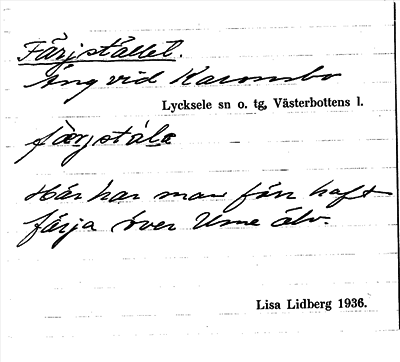 Färjstället.
Äng vid Karombo
Lycksele sn o. tg, Västerbottens l.
färjstälə
Här har man förr haft
färja över Ume älv.
Lisa Lidberg 1936.